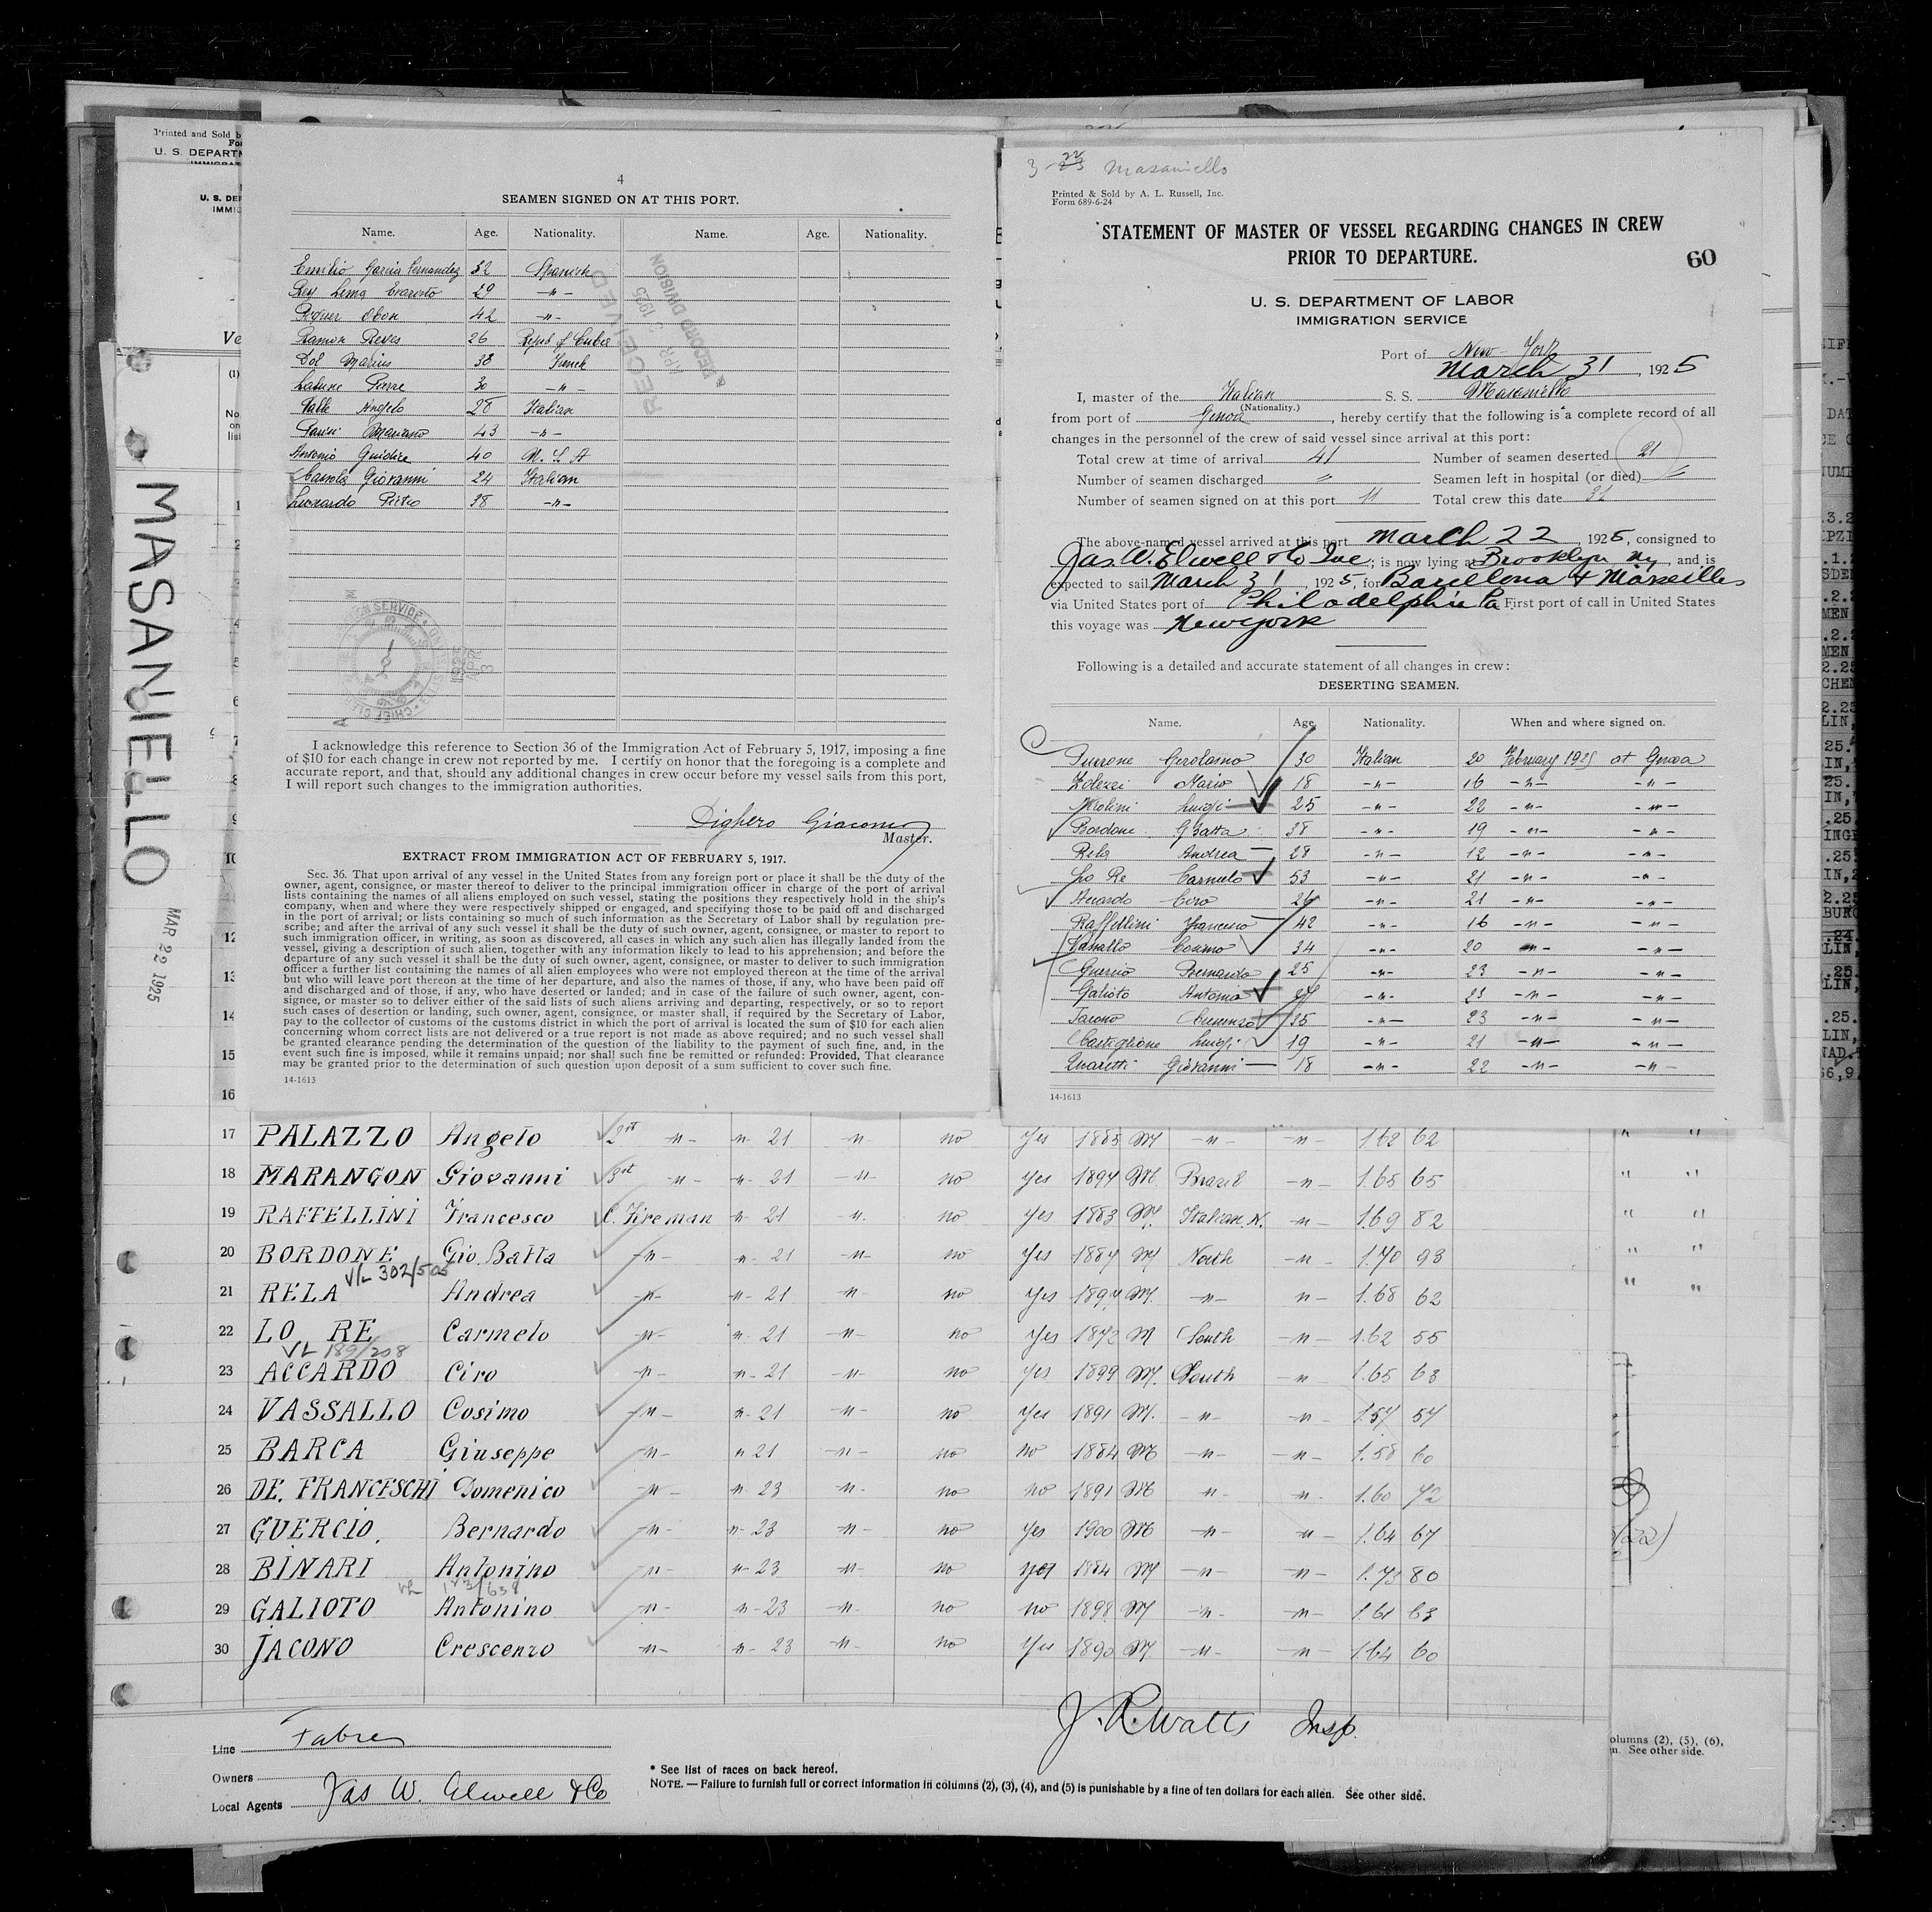 Printed and Sold b
U. S. DEPARTM
U. S. DEP
IMMIG
Ve
MASANIELLO
MAR 22 1925
4
SEAMEN SIGNED ON AT THIS PORT.
Name. Age. Nationality. Name. Age. Nationality.
Emilio Garcia Fernandez 32 Spanish
Rey Lema Evaristo 29 -"-
Obon 42 -"-
Ramon Reyes 26 Repub of Cuba
Dol Marius 38 French
Pierre 30 -"-
Valle Angelo 28 Italian
Mariano 43 -"-
Antonio Guidice 40 U. S. A
Giovanni 24 Italian
Leonardo Pietro 38 -"-
RECEIVED
APR 3 1925
RECORD DIVISION
I acknowledge this reference to Section 36 of the Immigration Act of February 5, 1917, imposing a fine
of $10 for each change in crew not reported by me. I certify on honor that the foregoing is a complete and
accurate report, and that, should any additional changes in crew occur before my vessel sails from this port,
I will report such changes to the immigration authorities.
Dighero Giacomo
Master.
EXTRACT FROM IMMIGRATION ACT OF FEBRUARY 5, 1917.
Sec. 36. That upon arrival of any vessel in the United States from any foreign port or place it shall be the duty of the
owner, agent, consignee, or master thereof to deliver to the principal immigration officer in charge of the port of arrival
lists containing the names of all aliens employed on such vessel, stating the positions they respectively hold in the ship's
company, when and where they were respectively shipped or engaged, and specifying those to be paid off and discharged
in the port of arrival; or lists containing so much of such information as the Secretary of Labor shall by regulation pre-
scribe; and after the arrival of any such vessel it shall be the duty of such owner, agent, consignee, or master to report to
such immigration officer, in writing, as soon as discovered, all cases in which any such alien has illegally landed from the
vessel, giving a description of such alien, together with any information likely to lead to his apprehension; and before the
departure of any such vessel it shall be the duty of such owner, agent, consignee, or master to deliver to such immigration
officer a further list containing the names of all alien employees who were not employed thereon at the time of the arrival
but who will leave port thereon at the time of her departure, and also the names of those, if any, who have been paid off
and discharged and of those, if any, who have deserted or landed; and in case of the failure of such owner, agent, con-
signee, or master so to deliver either of the said lists of such aliens arriving and departing, respectively, or so to report
such cases of desertion or landing, such owner, agent, consignee, or master shall, if required by the Secretary of Labor,
pay to the collector of customs of the customs district in which the port of arrival is located the sum of $10 for each alien
concerning whom correct lists are not delivered or a true report is not made as above required; and no such vessel shall
be granted clearance pending the determination of the question of the liability to the payment of such fine, and, in the
event such fine is imposed, while it remains unpaid; nor shall such fine be remitted or refunded: Provided, That clearance
may be granted prior to the determination of such question upon deposit of a sum sufficient to cover such fine.
14-1613
3-22 Masaniello
Printed & Sold by A. L. Russell, Inc.
Form 689-6-24
STATEMENT OF MASTER OF VESSEL REGARDING CHANGES IN CREW
PRIOR TO DEPARTURE.
60
U. S. DEPARTMENT OF LABOR
IMMIGRATION SERVICE
Port of New York
March 31, 1925
I, master of the Italian S. S. Masaniello
(Nationality.)
from port of Genoa, hereby certify that the following is a complete record of all
changes in the personnel of the crew of said vessel since arrival at this port:
Total crew at time of arrival 41 Number of seamen deserted 21
Number of seamen discharged = Seamen left in hospital (or died) =
Number of seamen signed on at this port 11 Total crew this date 31
The above-named vessel arrived at this port March 22, 1925, consigned to
Jas. W. Elwell & Co Inc; is now lying at Brooklyn NY, and is
expected to sail March 31, 1925, for Barcellona & Marseilles
via United States port of Philadelphia Pa First port of call in United States
this voyage was New York
Following is a detailed and accurate statement of all changes in crew:
DESERTING SEAMEN.
Name. Age. Nationality. When and where signed on.
Gerolamo 30 Italian 20 February 1925 at Genoa
Mario 18 -"- 16 -"- -"-
Luigi 25 -"- 22 -"- -"-
Bordone G Batta 38 -"- 19 -"- -"-
Rela Andrea 28 -"- 12 -"- -"-
Lo Re Carmelo 53 -"- 21 -"- -"-
Accardo Ciro 26 -"- 21 -"- -"-
Raffellini Francesco 42 -"- 16 -"- -"-
Vassallo Cosimo 34 -"- 20 -"- -"-
Guercio Bernardo 25 -"- 23 -"- -"-
Galioto Antonino 27 -"- 23 -"- -"-
Jacono Crescenzo 35 -"- 23 -"- -"-
Castiglione Luigi 19 -"- 21 -"- -"-
Giovanni 18 -"- 22 -"- -"-
14-1613
17 PALAZZO Angelo 2nd -"- -"- 21 -"- no yes 1883 M -"- -"- 1.62 62
18 MARANGON Giovanni 3rd -"- -"- 21 -"- no yes 1894 M. Brazil -"- 1.65 65
19 RAFFELLINI Francesco C. Fireman -"- 21 -"- no yes 1883 M. Italian N. -"- 1.69 82
20 BORDONE Gio Batta -"- -"- 21 -"- no Yes 1887 M North -"- 1.70 93
V/L 302/505
21 RELA Andrea -"- -"- 21 -"- no yes 1897 M. -"- -"- 1.68 62
22 LO RE Carmelo -"- -"- 21 -"- no Yes 1872 M South -"- 1.62 55
VL 189/208
23 ACCARDO Ciro -"- -"- 21 -"- no yes 1899 M. South -"- 1.65 63
24 VASSALLO Cosimo -"- -"- 21 -"- no Yes 1891 M. -"- -"- 1.57 57
25 BARCA Giuseppe -"- -"- 21 -"- no no 1884 M -"- -"- 1.58 60
26 DE FRANCESCHI Domenico -"- -"- 23 -"- no no 1891 M -"- -"- 1.60 72
27 GUERCIO Bernardo -"- -"- 23 -"- no Yes 1900 M -"- -"- 1.64 67
28 BINARI Antonino -"- -"- 23 -"- no 1884 M -"- -"- 1.73 80
29 GALIOTO Antonino -"- -"- 23 -"- no no 1898 M -"- -"- 1.61 63
30 JACONO Crescenzo -"- -"- 23 -"- no Yes 1890 M. -"- -"- 1.64 60
J. R. Watts Insp.
Line Fabre
Owners
Local Agents Jas W. Elwell & Co
* See list of races on back hereof.
NOTE. — Failure to furnish full or correct information in columns (2), (3), (4), and (5) is punishable by a fine of ten dollars for each alien. See other side.
olumns (2), (5), (6),
n. See other side.